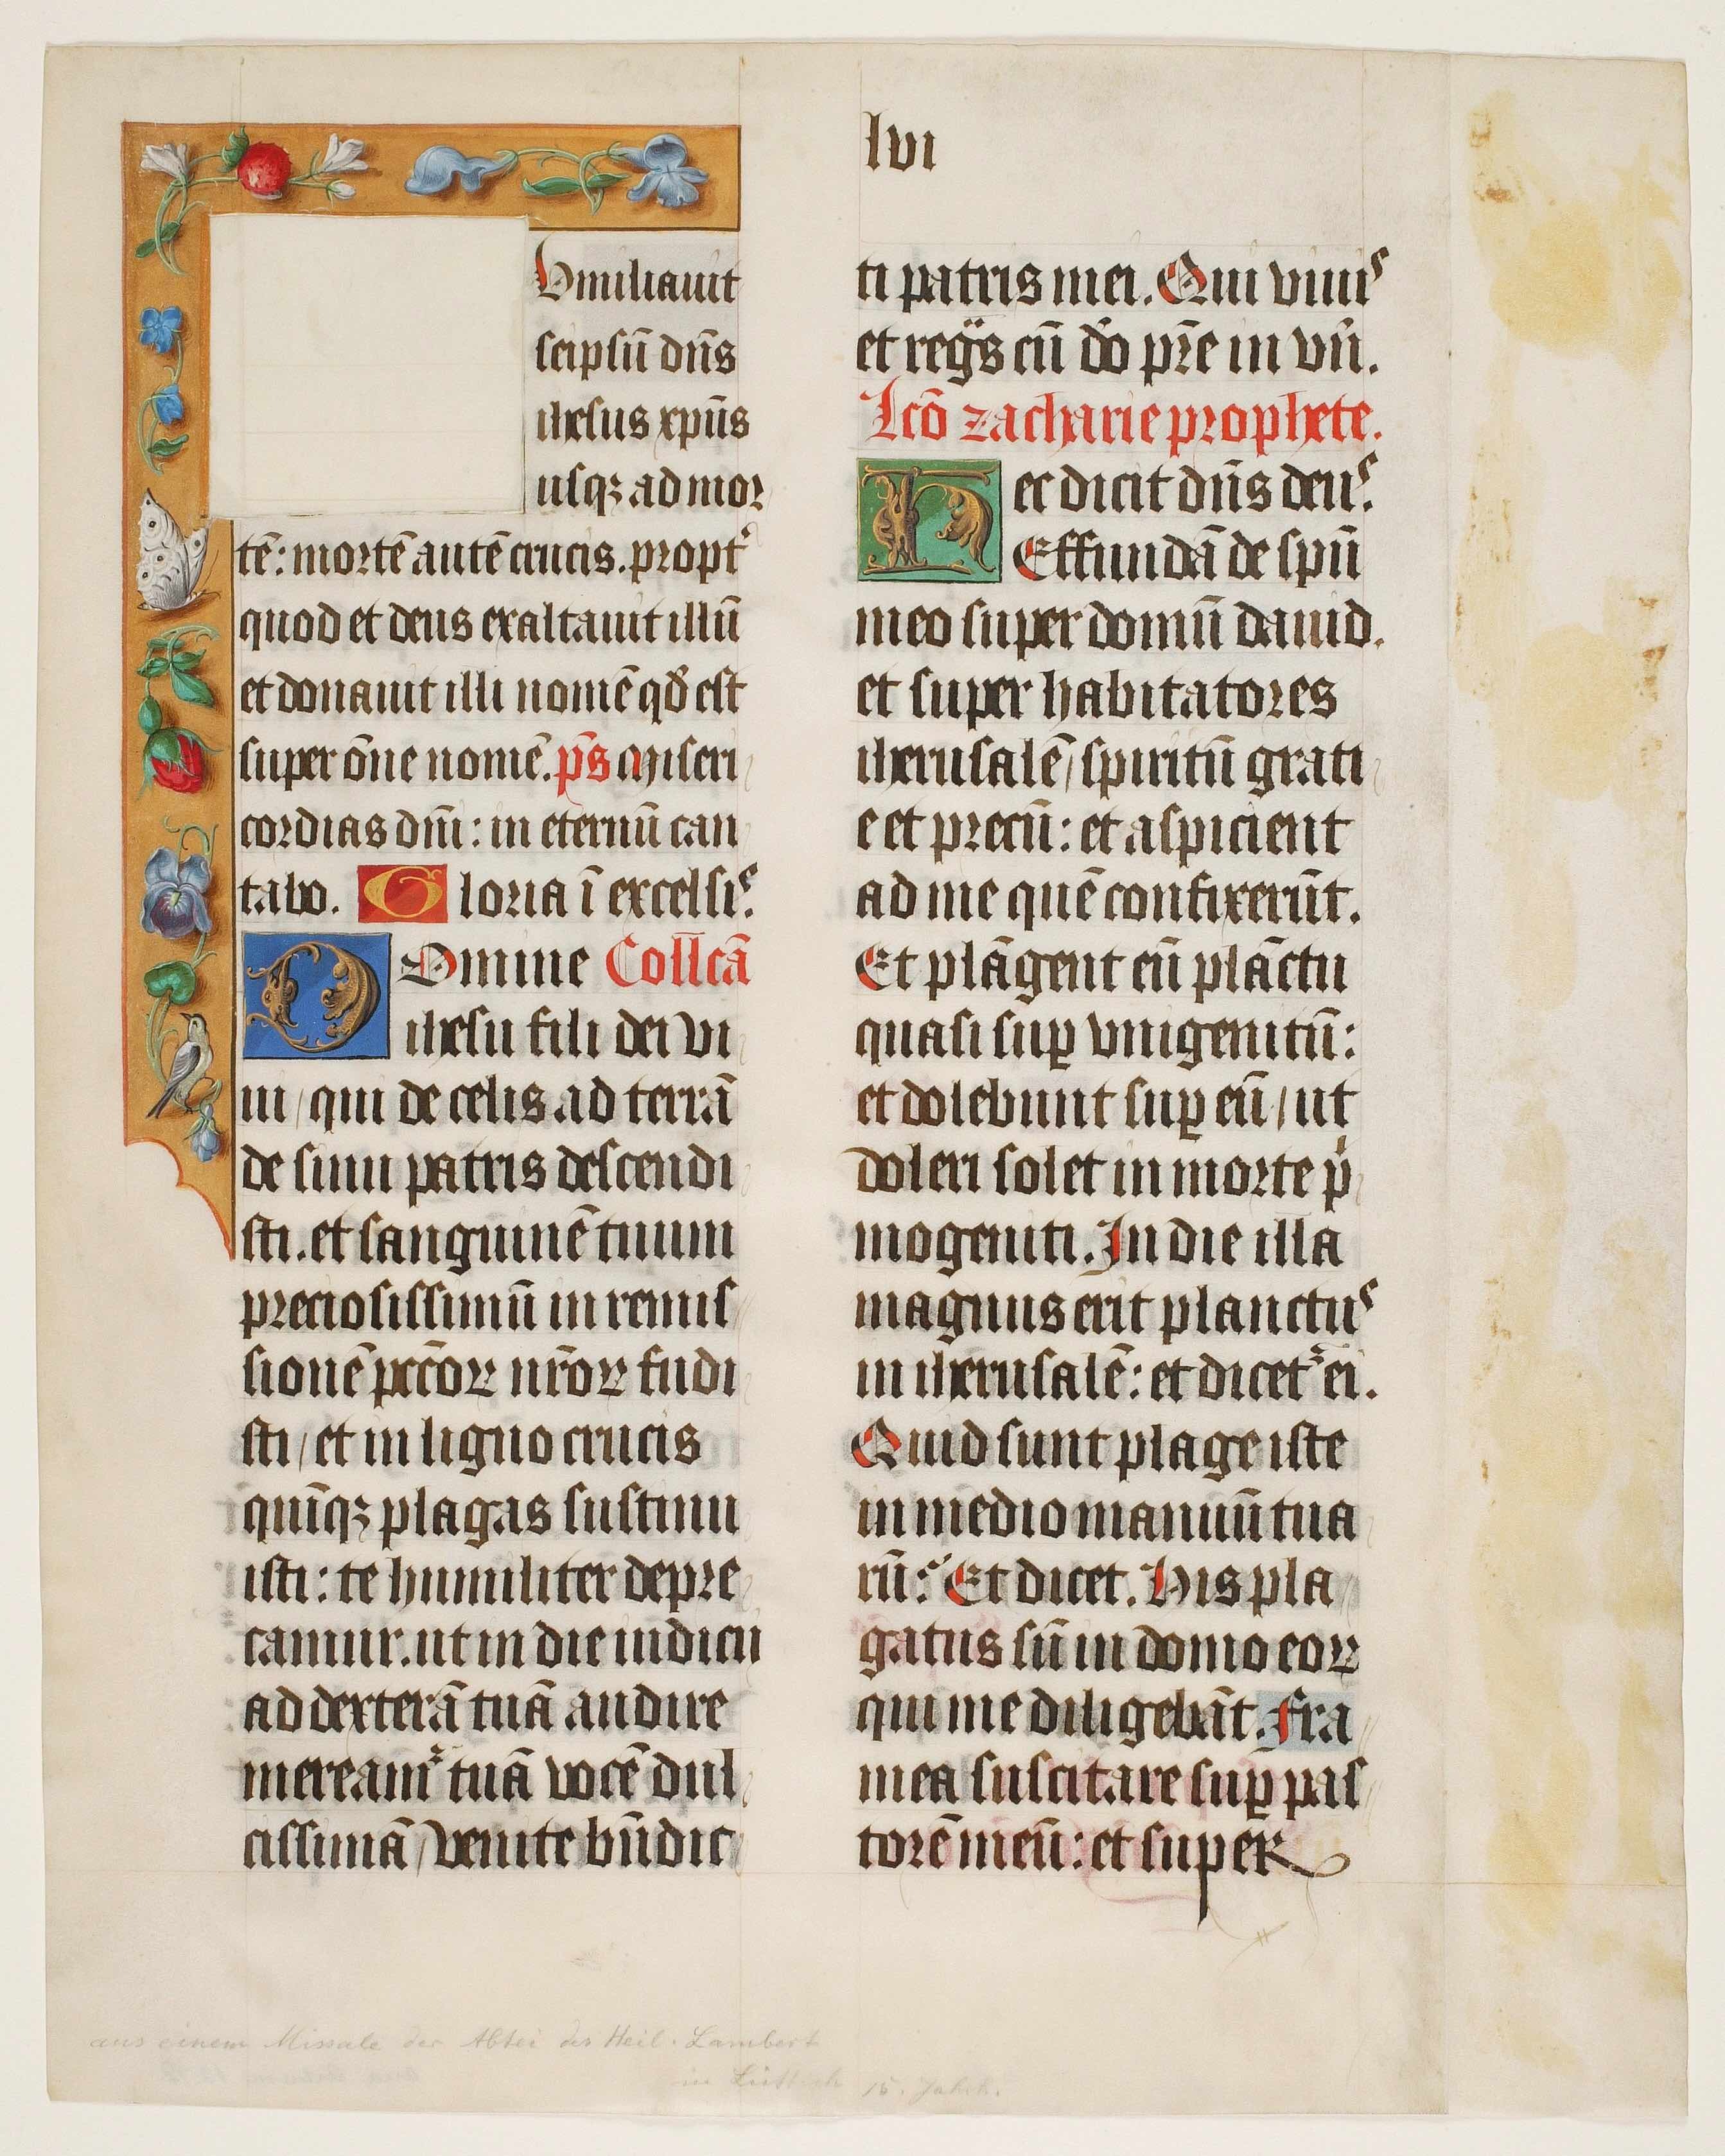 lvi
Humiliauit
seipsū dn̄s
ihesus xpūs
usqꝫ ad moꝛ
tē: moꝛtē autē crucis. pꝛopt᷑
quod et deus exaltauit illū
et donauit illi nomē qď est
super ōne nomē. p̄s Miseri
coꝛdias dn̄i: in eternū can
tabo. Gloꝛia ī excelsis.
Domine Collcā
ihesu fili dei vi
ui / qui de celis ad terrā
de sinu patris descendi
sti. et sanguinē tuum
pꝛeciosissimū in remis
sionē pccōꝝ nr̄oꝝ fudi
sti / et in ligno crucis
quīqꝫ plagas sustinu
isti: te humiliter depꝛe
camur. ut in die iudicii
ad dexterā tuā audire
mereamᷣ tuā vocē dul
cissimā / Venite bn̄dic
ti patris mei. Qui viuis
et regͣs cū dō pꝛ̄e in vn̄.
Lcō zacharie pꝛophete.
Hec dicit dn̄s deus.
Effundā de spū
meo super domū dauid.
et super habitatoꝛes
iherusalē / spiritū grati
e et pꝛecū: et aspicient
ad me quē confixerūt.
Et plāgent eū plāctu
quasi suꝑ vnigenitū:
et dolebunt suꝑ eū / ut
doleri solet in moꝛte pͥ
mogeniti. In die illa
magnus erit planctus
in iherusalē: et dicetᷣ ei.
Quid sunt plage iste
in medio manuū tua
rū: Et dicet. His pla
gatus sū in domo eoꝝ
qui me diligebāt. Fra
mea suscitare suꝑ pas
toꝛē meū: et super
aus einem Missale der Abtei des Heil. Lambert
in Lüttich 15. Jahrh.